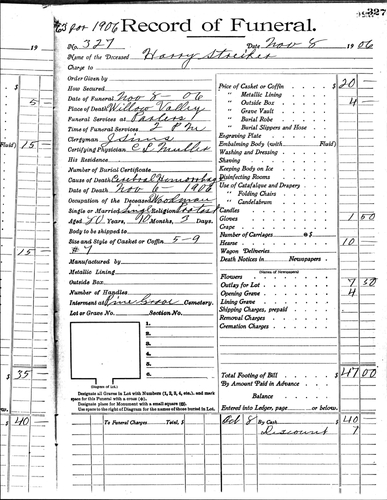 327
63 for 1906 Record of Funeral.
No. 327 Date Nov 8 1906
Name of the Deceased Harry Streiker
Charge to
Order Given by
How Secured
Date of Funeral Nov 8 - 06
Place of Death Willow Valley
Funeral Services at Parlors
Time of Funeral Services 2 P M
Clergyman J Sims
Certifying Physician C L Muller
His Residence
Number of Burial Certificate
Cause of Death Cerebral Hemorrhage
Date of Death Nov 6 - 1906
Occupation of the Deceased Woodsman
Single or Married Single Religion Protest
Aged 30 Years, Months, Days
Body to be shipped to
Size and Style of Casket or Coffin 5-9
# 7
Manufactured by
Metallic Lining
Outside Box
Number of Handles
Interment at Pine Grove Cemetery.
Lot or Grave No. Section No.
1.
2.
3.
4.
5.
6.
(Diagram of Lot.)
Designate all Graves in Lot with Numbers (1, 2, 3, 4, etc.), and mark
space for this Funeral with a cross (x).
Designate place for Monument with a small square (□).
Use space to the right of Diagram for the names of those buried in Lot.
To Funeral Charges Total, $
Price of Casket or Coffin $ 20
" Metallic Lining
" Outside Box 4
" Grave Vault
" Burial Robe
" Burial Slippers and Hose
Engraving Plate
Embalming Body (with Fluid)
Washing and Dressing
Shaving
Keeping Body on Ice
Disinfecting Rooms
Use of Catafalque and Drapery
" Folding Chairs
" Candelabrum
Candles
Gloves 1 50
Crape
Number of Carriages @ $
Hearse 10
Wagon Deliveries
Death Notices in Newspapers
(Names of Newspapers)
Flowers
Outlay for Lot 7 50
Opening Grave 4
Lining Grave
Shipping Charges, prepaid
Removal Charges
Cremation Charges
Total Footing of Bill $ 47 00
By Amount Paid in Advance
Balance
Entered into Ledger, page or below.
Oct 8 By Cash $ 40
Discount 7
19
5
Fluid) 15
15
$ 35
$ 40